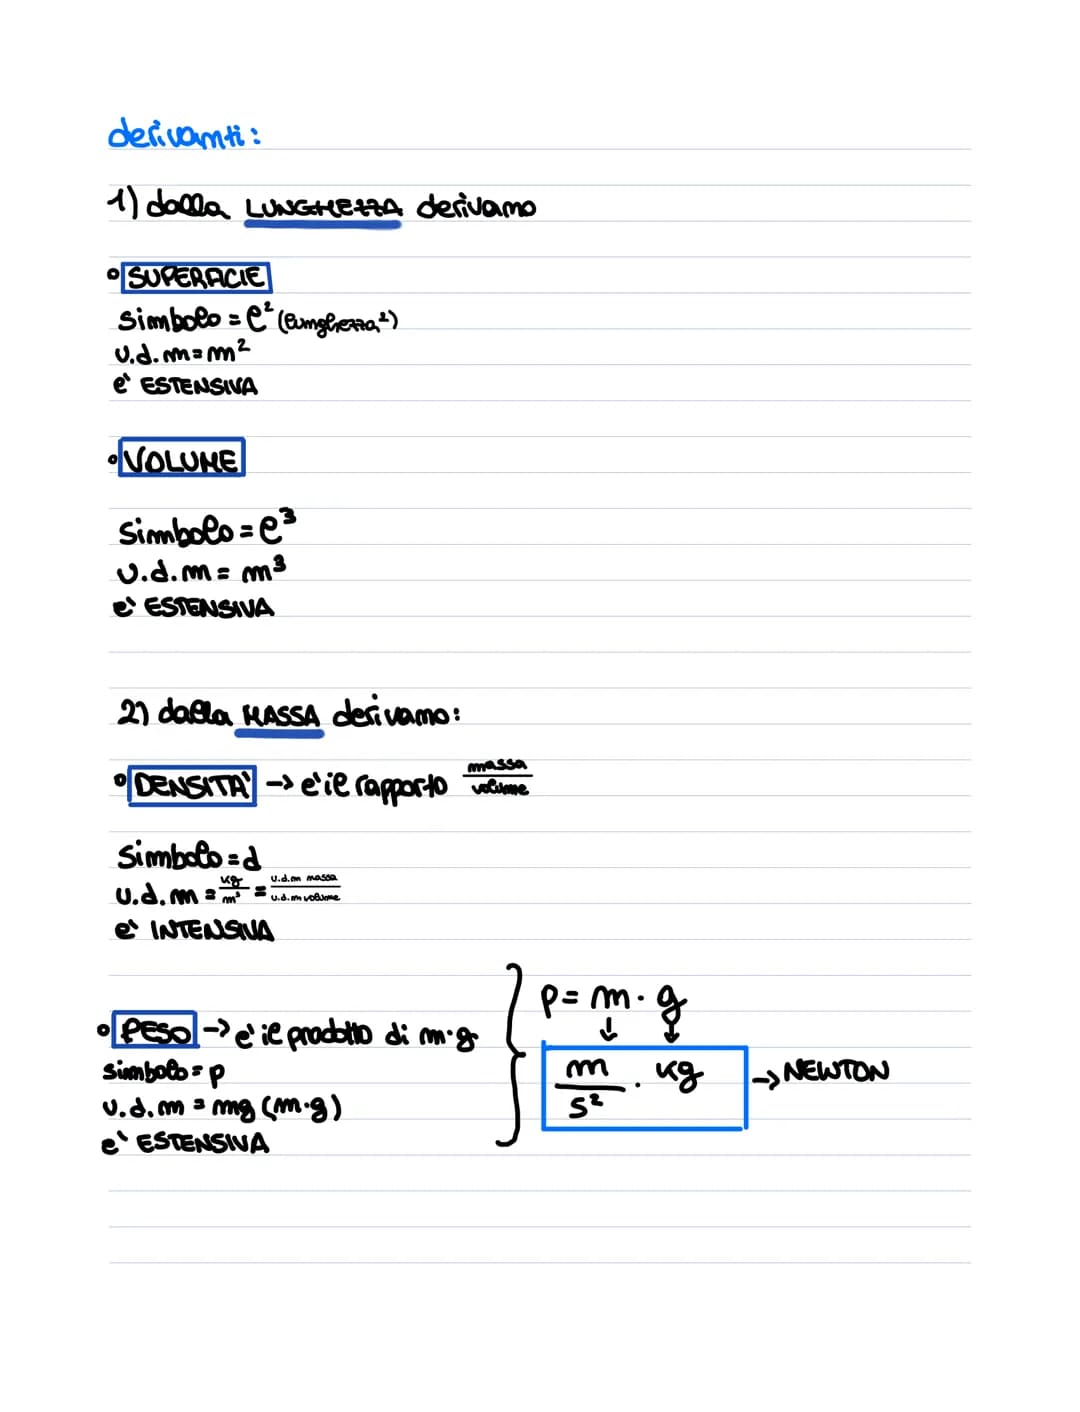 derivanti:
1) dalla LUNGHEZZA derivano
SUPERFICIE
Simbolo = l² (lunghezza²)
u.d.m = m²
e' ESTENSIVA
VOLUME
Simbolo = l³
u.d.m = m³
e' ESTENSIVA
2) dalla MASSA derivano:
DENSITA' → e' il rapporto massa/volume
Simbolo = d
u.d.m = kg/m³ = u.d.m massa/u.d.m volume
e' INTENSIVA
PESO → e' il prodotto di m·g
simbolo = p
u.d.m = mg (m·g)
e' ESTENSIVA
p = m · g
↓ ↓
m/s² · kg → NEWTON